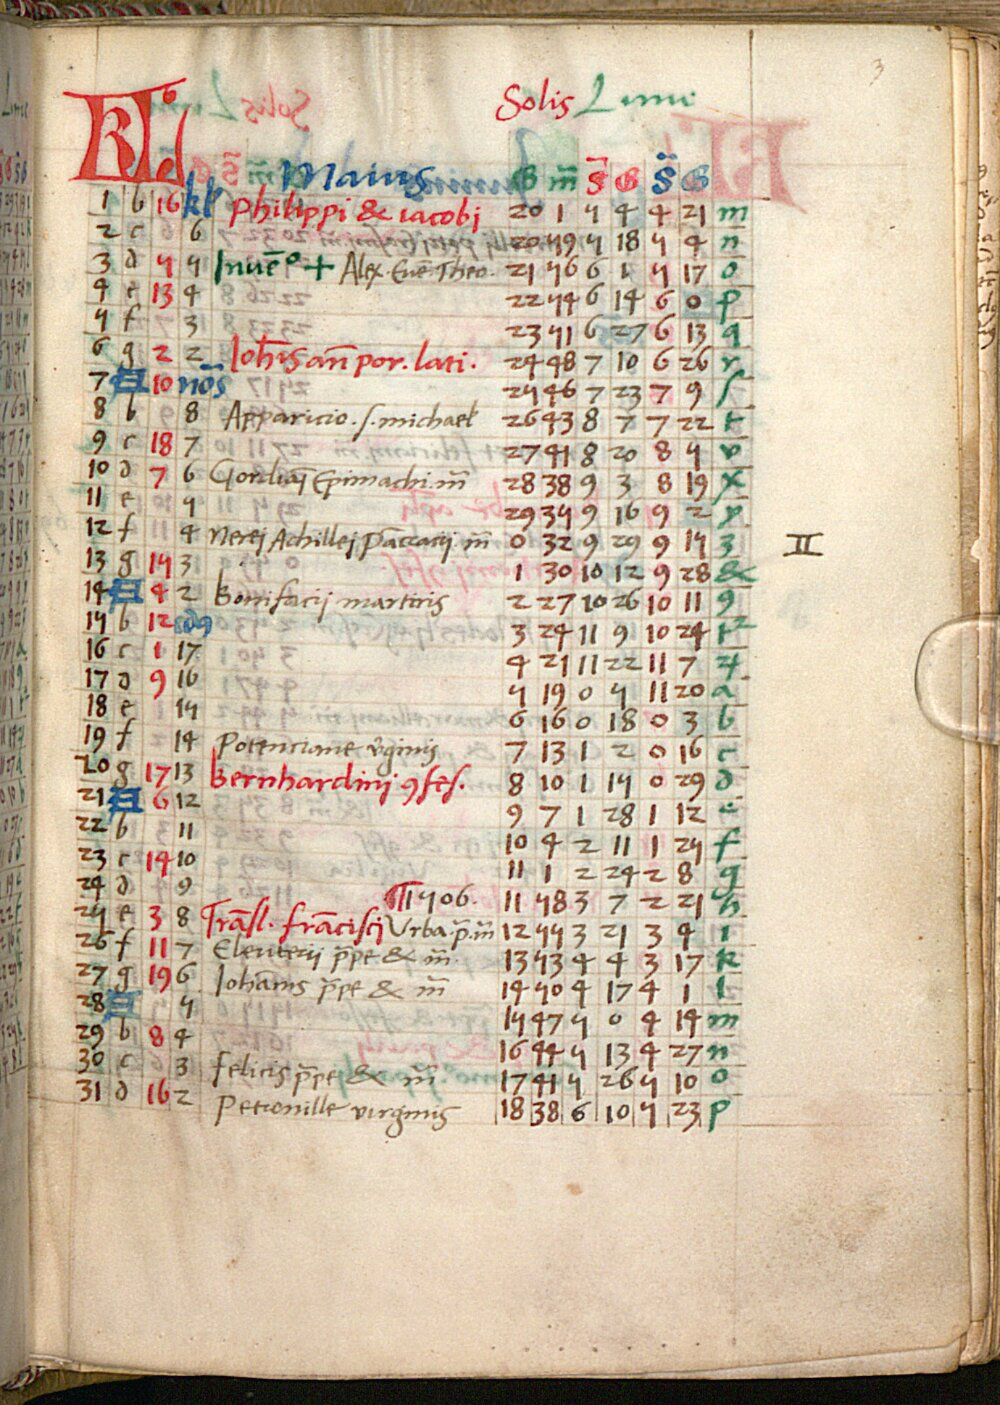 3
Solis Lune
KL Maius G m̄ S̄ G S̄ G
1 b 16 kl Philippi & iacobi 20 1 5 4 4 21 m
2 c 6 20 59 5 18 5 4 n
3 d 5 5 Invē° + Alex. Evē Theo. 21 56 6 1 5 17 o
4 e 13 4 22 54 6 14 6 0 p
5 f 3 23 51 6 27 6 13 q
6 g 2 2 Iohīs an̄ por. lati. 24 48 7 10 6 26 r
7 A 10 nōs 25 46 7 23 7 9 ſ
8 b 8 Apparicio . s. michael 26 43 8 7 7 22 t
9 c 18 7 27 41 8 20 8 5 v
10 d 7 6 Gordiaī Epimachi. m̄ 28 38 9 3 8 19 x
11 e 5 29 35 9 16 9 2 y
12 f 4 Nerei Achillei Pācracii m̄ 0 32 9 29 9 15 z II
13 g 15 3 1 30 10 12 9 28 &
14 A 4 2 Bonifacij martiris 2 27 10 26 10 11 9
15 b 12 id9 3 24 11 9 10 24
16 c 1 17 4 21 11 22 11 7
17 d 9 16 5 19 0 5 11 20 a
18 e 15 6 16 0 18 0 3 b
19 f 14 Potenciane v̄ginis 7 13 1 2 0 16 c
20 g 17 13 Bernhardinj 9fes. 8 10 1 15 0 29 d
21 A 6 12 9 7 1 28 1 12 e
22 b 11 10 4 2 11 1 25 f
23 c 14 10 11 1 2 24 2 8 g
24 d 9 ¶1506. 11 58 3 7 2 21 h
25 e 3 8 Trāsl. frācisci Vrba. p̄. m̄ 12 55 3 21 3 4 i
26 f 11 7 Eleuterij p̄pe & m̄. 13 53 4 4 3 17 k
27 g 19 6 Iohānis p̄pe & m̄ 14 50 4 17 4 1 l
28 A 5 15 47 5 0 4 14 m
29 b 8 4 16 44 5 13 4 27 n
30 c 3 Felicis p̄pe & m̄ 17 41 5 26 5 10 o
31 d 16 2 Petronille virginis 18 38 6 10 5 23 p